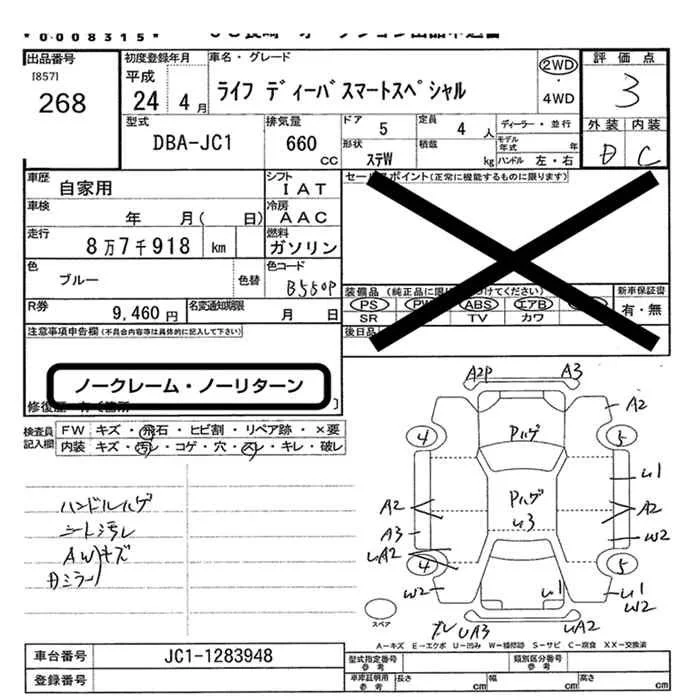 *0008315*
出品番号
[857]
268
初度登録年月
平成
24 4 月
車名・グレード
ライフ ディーバスマートスペシャル
2WD
・
4WD
評価点
3
外装 内装
D C
型式
DBA-JC1
排気量
660
CC
ドア 5
定員 4 人
形状 ステW
積載 kg
ディーラー・並行
モデル年式 年
ハンドル 左・右
車歴
自家用
シフト
IAT
車検
年 月( 日)
冷房
AAC
走行
8万7千918 km
燃料
ガソリン
色
ブルー
色替
色コード
B550P
R券
9,460 円
名変通知期限
月 日
セールスポイント(正常に機能するものに限ります)
装備品 (純正品に限
けてください)
新車保証書
有・無
PS PW ABS エアB
SR TV カワ
後日品
注意事項申告欄(不具合内容等は具体的に記入して下さい)
ノークレーム・ノーリターン
検査員
記入欄
FW キズ・飛石・ヒビ割・リペア跡・×要
内装 キズ・汚レ・コゲ・穴・スレ・キレ・破レ
ハンドルハゲ
シート汚レ
AWキズ
Dミラー
A2P A3
A2
4 5
Pハゲ
U1
Pハゲ
U3
A2 A2
A3 W2
UA2
4 5
W2 U1 U1
W2
UA3 UA2
スペア
A-キズ E-エクボ U-凹み W-補修跡 S-サビ C-腐食 XX-交換済
車台番号
JC1-1283948
登録番号
型式指定番号
参考
類別区分番号
参考
車庫証明用
参考
長さ cm 幅 cm 高さ cm